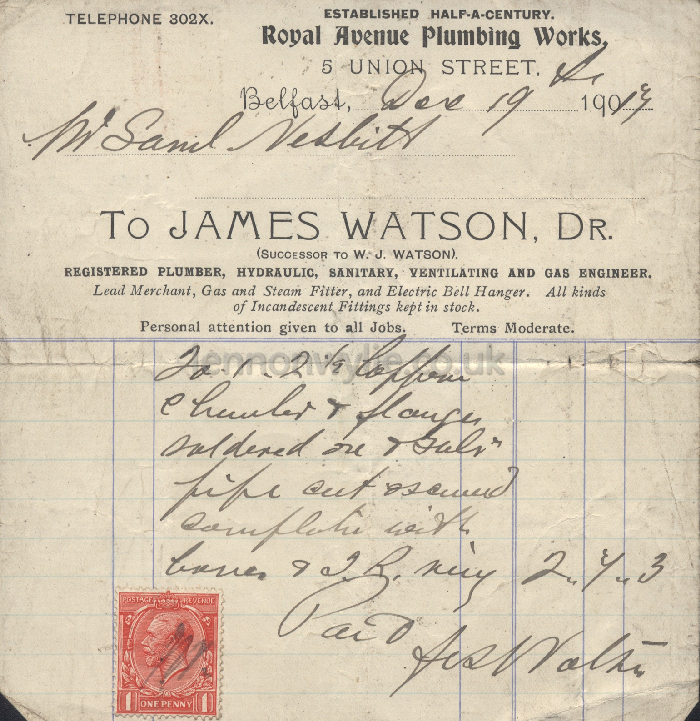 TELEPHONE 302X.
ESTABLISHED HALF-A-CENTURY.
Royal Avenue Plumbing Works,
5 UNION STREET,
Belfast, Dec 19 th 190 19
Mr Saml Nesbitt
To JAMES WATSON, Dr.
(SUCCESSOR TO W. J. WATSON).
REGISTERED PLUMBER, HYDRAULIC, SANITARY, VENTILATING AND GAS ENGINEER.
Lead Merchant, Gas and Steam Fitter, and Electric Bell Hanger. All kinds
of Incandescent Fittings kept in stock.
Personal attention given to all Jobs. Terms Moderate.
lennonwylie.co.uk
To 1 - 2 Copper
Chamber & flanges
soldered on &
pipe cut & screwed
complete with
& I. R. ring 2 " 4 " 3
Paid
Jas Watson
POSTAGE REVENUE
1 ONE PENNY 1